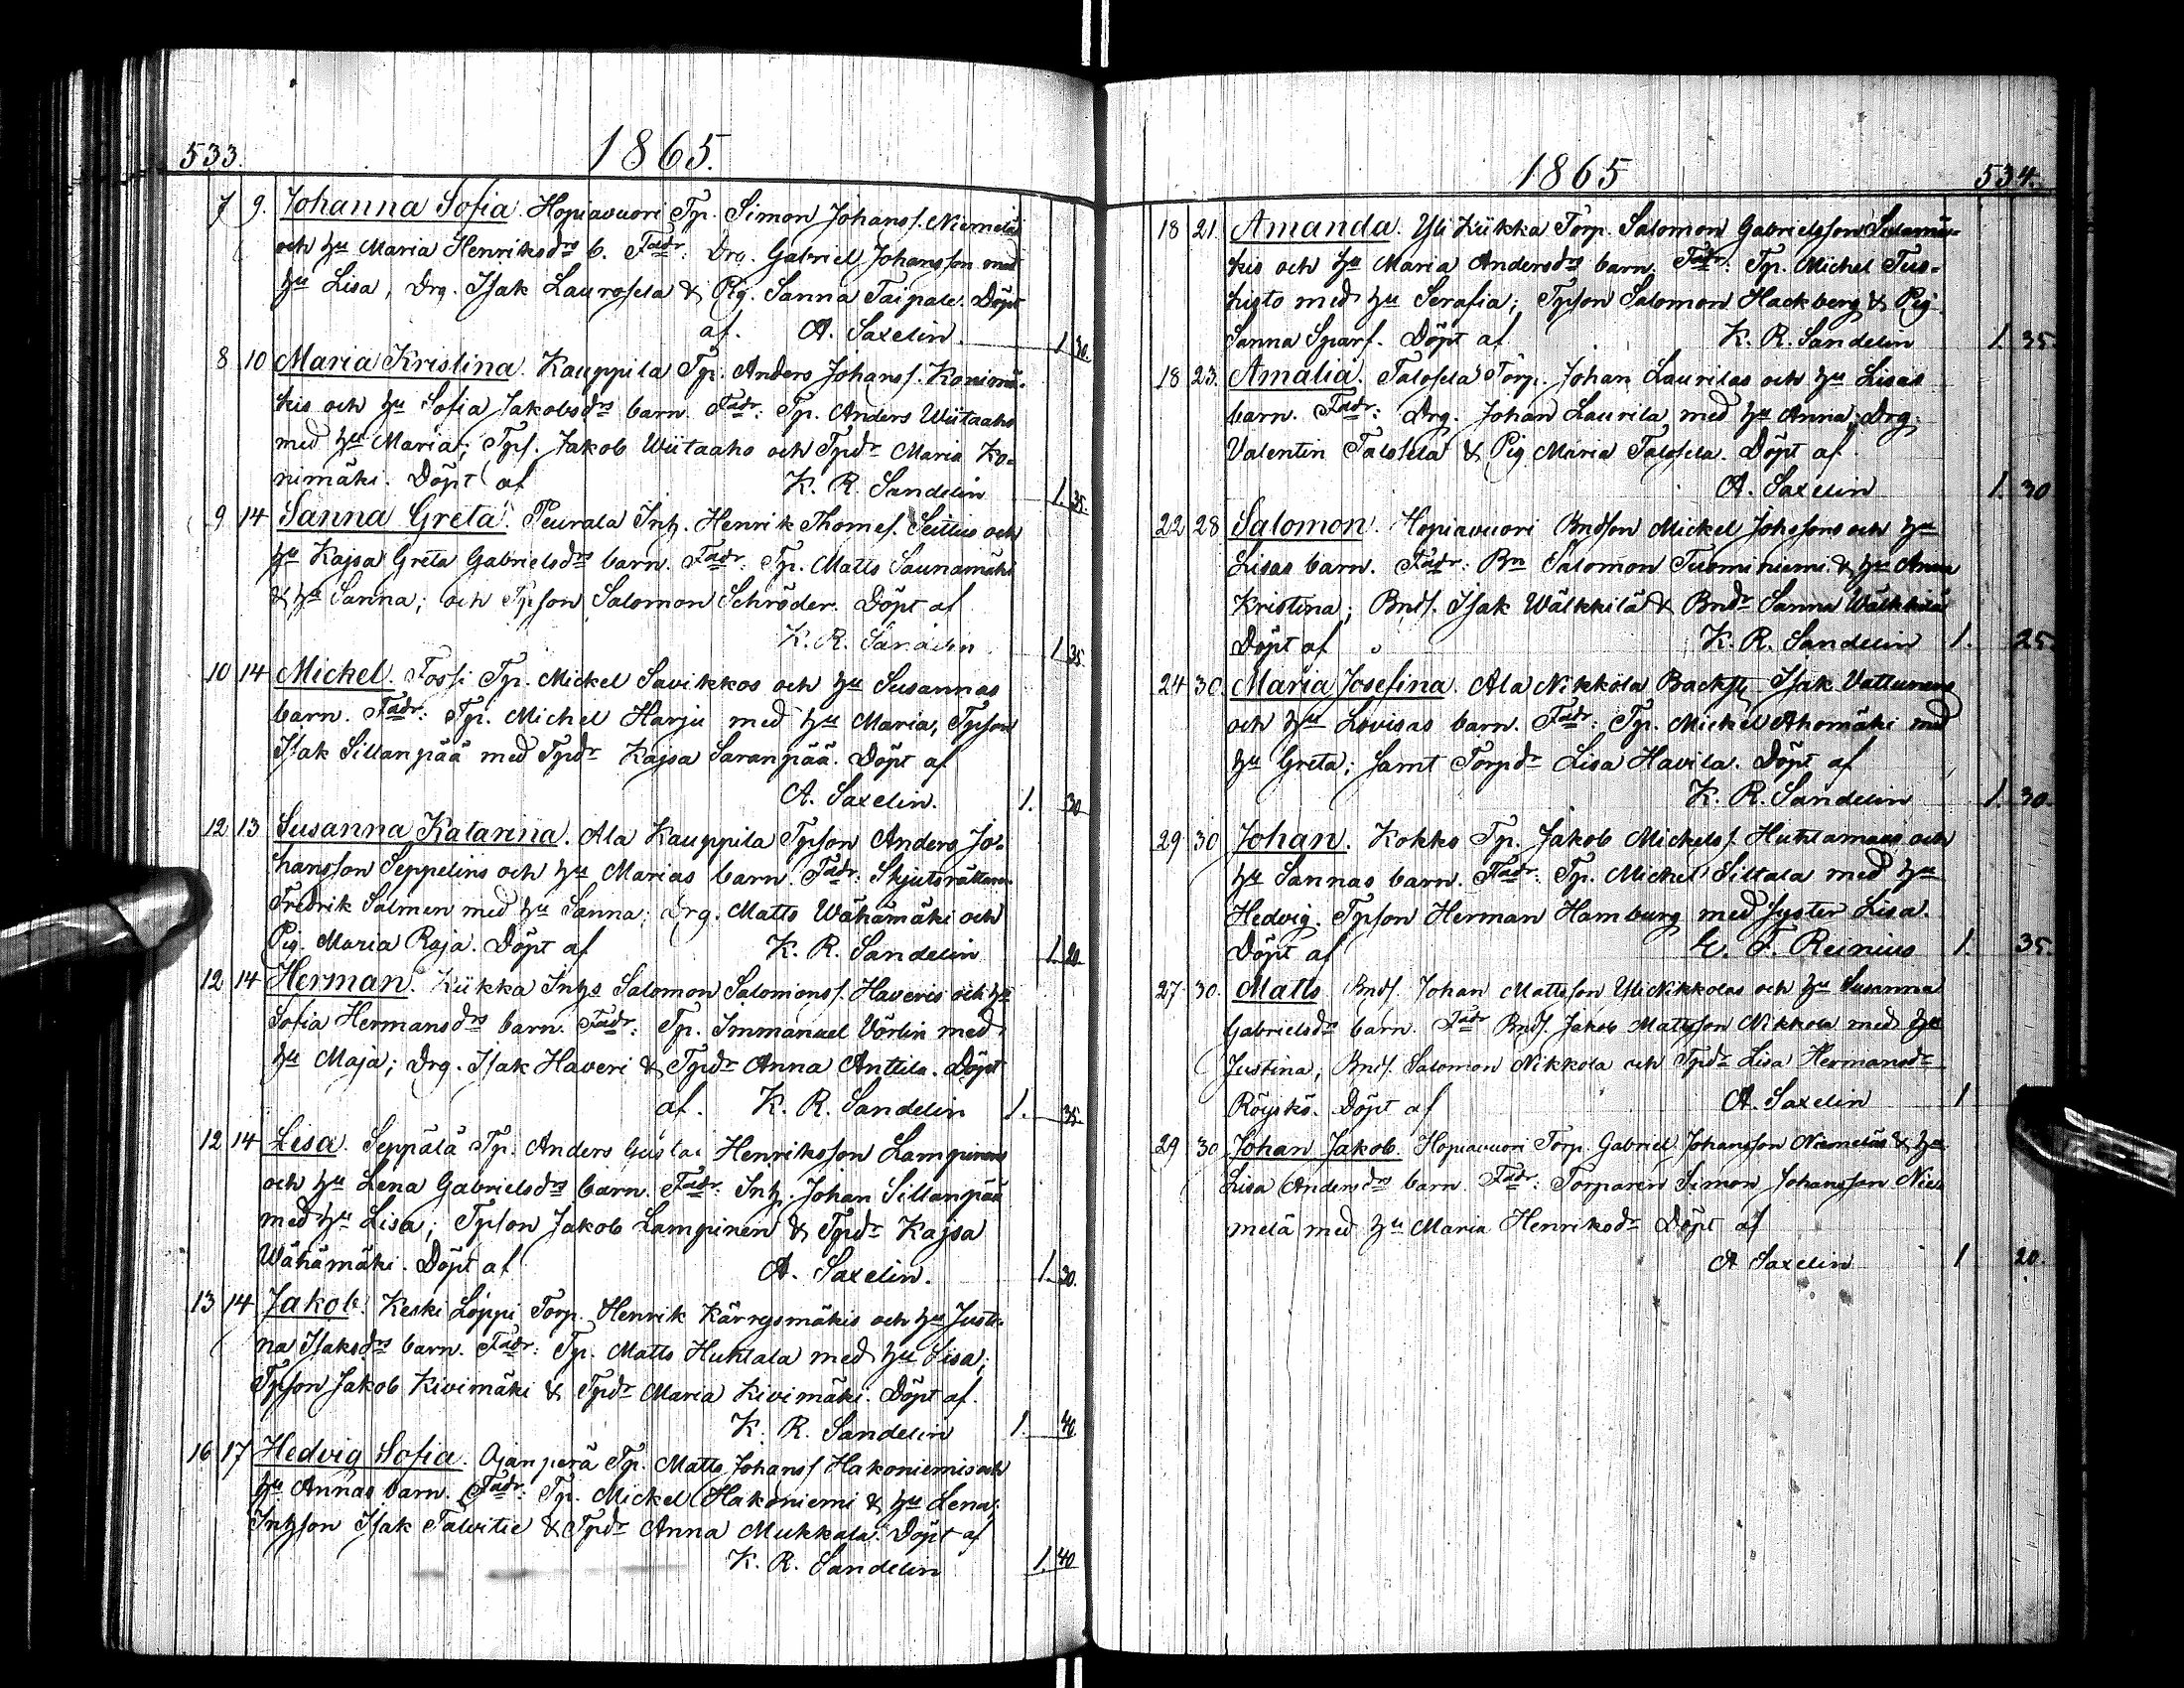 533.
1865.
7 9. Johanna Sofia. Hopiavuori Tp. Simon Johanss. Niemeläs
och hu Maria Henriksdrs b. Fadr: Drg. Gabriel Johansson med
hu Lisa, Drg. Isak Laurosela & Pig. Sanna Taipale. Döpt
af. A. Saxelin. 1 30.
8 10 Maria Kristina. Kauppila Tp. Anders Johanss. Konimä-
kis och hu Sofia Jakobsdrs barn. Fadr: Tp. Anders Wiitaaho
med hu Maria; Tps. Jakob Wiitaaho och Tpdr Maria Ko-
nimäki. Döpt af K. R. Sandelin 1. 35.
9 14 Sanna Greta. Peurala Inh. Henrik Thomes. Seillus och
hu Kajsa Greta Gabrielsdrs barn. Fadr: Tp. Matts Saunamäki
& hu Sanna; och Tpson Salomon Schröder. Döpt af
K. R. Sandelin 1 35.
10 14 Michel. Fossi Tp. Mickel Savikkos och hu Susannas
barn. Fadr: Tp. Michel Harju med hu Maria, Tpson
Isak Sillanpää med Tpdr Kajsa Saranpää. Döpt af
A. Saxelin. 1. 30
12 13 Susanna Katarina. Ala Kauppila Tpson Anders Jo-
hansson Seppelins och hu Marias barn. Fadr: Skjutsrättaren
Fredrik Salmen med hu Sanna; Drg. Matts Wähämäki och
Pig. Maria Raja. Döpt af K. R. Sandelin 1. 20.
12 14 Herman. Kükka Inhs Salomon Salomonss. Haveris och hu
Sofia Hermansdrs barn. Fadr: Tp. Immanuel Vörlin med
hu Maja; Drg. Isak Haveri & Tpdr Anna Anttila. Döpt
af. K. R. Sandelin 1. 35.
12 14 Lisa. Seppälä Tp. Anders Gustaf Henriksson Lampinens
och hu Lena Gabrielsdrs barn. Fadr: Inh. Johan Sillanpää
med hu Lisa; Tpson Jakob Lampinen & Tpdr Kajsa
Wähämäki. Döpt af A. Saxelin. 1. 30.
13 14 Jakob. Keski Löppi Torp. Henrik Kärrysmäkis och hu Justi-
na Isaksdrs barn. Fadr: Tp. Matts Huhtala med hu Lisa;
Tpson Jakob Kivimäki & Tpdr Maria Kivimäki. Döpt af.
K. R. Sandelin 1. 40.
16 17 Hedvig Sofia. Ojanperä Tp. Matts Johanss Hakoniemis och
hu Annas barn. Fadr: Tp. Mickel Hakoniemi & hu Lena;
Inhson Isak Talvitie & Tpdr Anna Mukkala. Döpt af
K. R. Sandelin 1. 40
1865
534.
18 21. Amanda. Yli Kükka Torp. Salomon Gabrielsson
kis och hu Maria Andersdrs barn. Fadr: Tp. Michel Tus-
kisto med hu Serafia; Tpson Salomon Hackberg & Pig
Sanna Sparf. Döpt af K. R. Sandelin 1. 35.
18 23. Amalia. Talosela Torp. Johan Laurilas och hu Lisas
barn. Fadr: Drg. Johan Laurila med hu Anna; Drg.
Valentin Talosela & Pig Maria Talosela. Döpt af.
A. Saxelin 1. 30
22 28 Salomon. Hopiavuori Bndson Mickel Johssons och hu
Lisas barn. Fadr: Bn Salomon Tuominiemi & hu Anna
Kristina; Bnds. Isak Wälkkilä & Bndr Sanna Wälkkilä
Döpt af K. R. Sandelin 1. 25.
24 30. Maria Josefina. Ala Nikkola Backst. Isak Vattunens
och hu Lovisas barn. Fadr: Tp. Mickel Ahomäki med
hu Greta; samt Torpdr Lisa Havila. Döpt af
K. R. Sandelin 1. 30.
29 30 Johan. Kokko Tp. Jakob Michelss. Huhtamaas och
hu Sannas barn. Fadr: Tp. Michel Siltala med hu
Hedvig. Tpson Herman Hamburg med syster Lisa.
Döpt af E. F. Reinius 1. 35.
27 30. Matts Bnds. Johan Mattsson Yli Nikkolas och hu Susanna
Gabrielsdrs barn. Fadr Bnds. Jakob Mattsson Nikkola med hu
Justina; Bnds. Salomon Nikkola och Tpdr Lisa Hermansdr
Röyskö. Döpt af A. Saxelin 1
29 30 Johan Jakob. Hopiavuori Torp. Gabriel Johansson Niemeläs & hu
Lisa Andersdrs barn. Fadr: Torparen Simon Johansson Nie
melä med hu Maria Henriksdr Döpt af
A Saxelin 1 20.